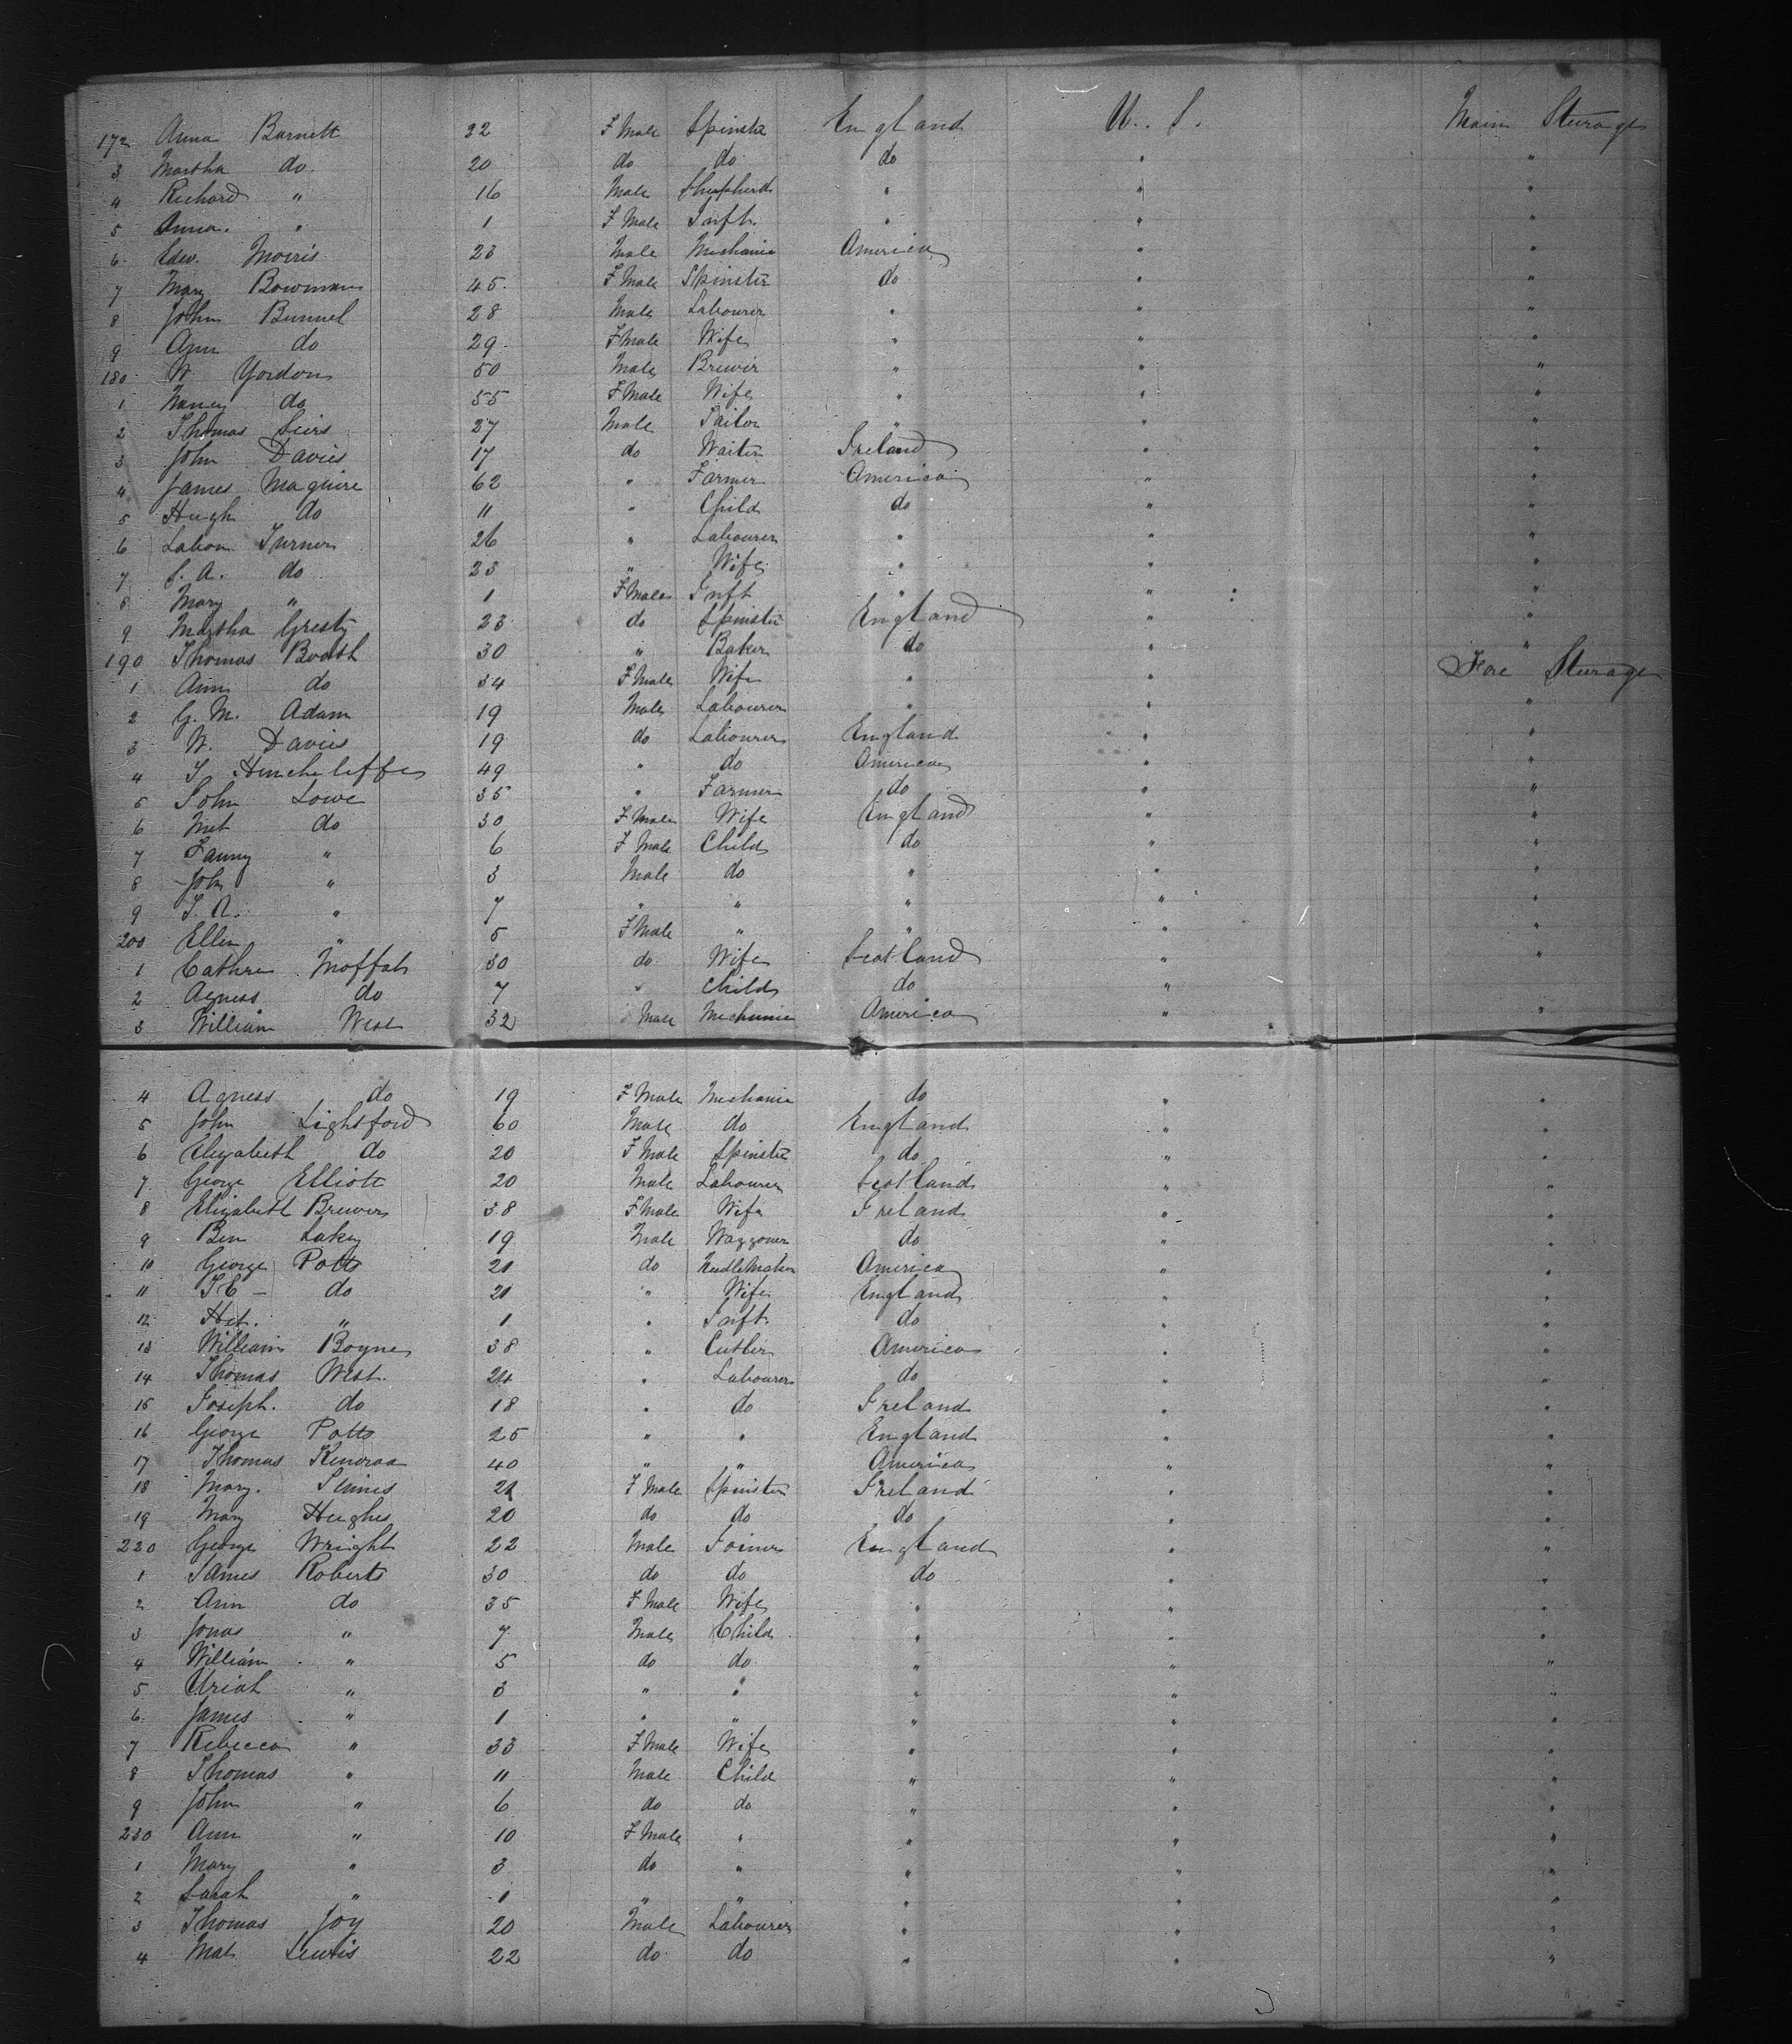 172 Anna Barnett 22 F Male Spinster England U. S. Main Sturage
3 Martha do. 20 do do do " "
4 Richard " 16 Male Shepherd " " "
5 Anna. " 1 F Male Inft. " " "
6. Edw. Morris 23 Male Mechanic America " "
7 Mary Bowman 45. F Male Spinster do " "
8 John Bunnel 28 Male Labourer " " "
9 Ann do 29. F Male Wife " " "
180 W. Gordon 50 Male Brewer " " "
1 Nancy do 55 F Male Wife " " "
2 Thomas 27 Male Tailor " " "
3 John Davies 17 do Waiter Ireland " "
4 James Maguire 62 " Farmer America " "
5 Hugh do 11 " Child do " "
6 Turner 26 " Labourer " " "
7 S. A. do 23 " Wife " " "
8 Mary " 1 F Male Inft " " "
9 Martha Gresty 23 do Spinster England " "
190 Thomas Booth 30 " Baker do " "
1 Ann do 34 F Male Wife " " Fore Sturage
2 G. M. Adam 19 Male Labourer " " "
3 W. Davies 19 do Labourer England " "
4 Hinchcliffe 49 " do America " "
5 John Lowe 35 " Farmer do " "
6 do 30 F Male Wife England " "
7 Fanny " 6 F Male Child do " "
8 John " 3 Male do " " "
9 " 7 " " " " "
200 Ellen " 5 F Male " " " "
1 Cathre Moffat 30 do Wife Scotland " "
2 Agness do 7 " Child do "
3 William West 32 Male Mechanic America " "
4 Agness do 19 F Male Mechanic do " "
5 John Lightford 60 Male do England " "
6 Elizabeth do 20 F Male Spinster do " "
7 George Elliott 20 Male Labourer Scotland " "
8 Elizabeth Brewer 38 F Male Wife Ireland " "
9 Ben Lakey 19 Male Waggoner do " "
10 George Potts 21 do Needle Maker America " "
11 do 21 " Wife England " "
12 " 1 " Inft. do " "
13 William Boyne 38 " Cutler America " "
14 Thomas West. 24 " Labourer do " "
15 Joseph. do 18 " do Ireland " "
16 George Potts 25 " " England " "
17 Thomas 40 " " America " "
18 Mary. 21 F Male Spinster Ireland " "
19 Mary Hughes 20 do do do " "
220 George Wright 22 Male Joiner England " "
1 James Roberts 30 do do do " "
2 Ann do 35 F Male Wife " " "
3 Jonas " 7 Male Child " " "
4 William " 5 do do " " "
5 Uriah " 3 " " " " "
6. James " 1 " " " " "
7 Rebecca " 33 F Male Wife " " "
8 Thomas " 11 Male Child " " "
9 John " 6 do do " " "
230 Ann " 10 F Male " " " "
1 Mary " 3 do " " " "
2 Sarah " 1 " " " " "
3 Thomas Joy 20 Male Labourer " " "
4 Mat Lewis 22 do do " " "